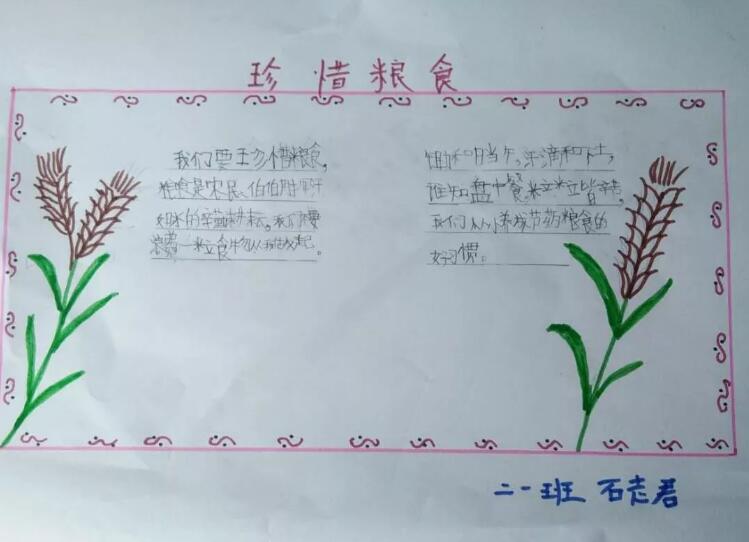 珍惜粮食
我们要珍惜粮食,
粮食是农民伯伯用汗
水的辛勤耕耘。我们不要
浪费一粒食物从我做起。
锄禾日当午,汗滴禾下土,
谁知盘中餐。粒粒皆辛苦,
我们从小养成节约粮食的
好习惯。
二一班 石志君